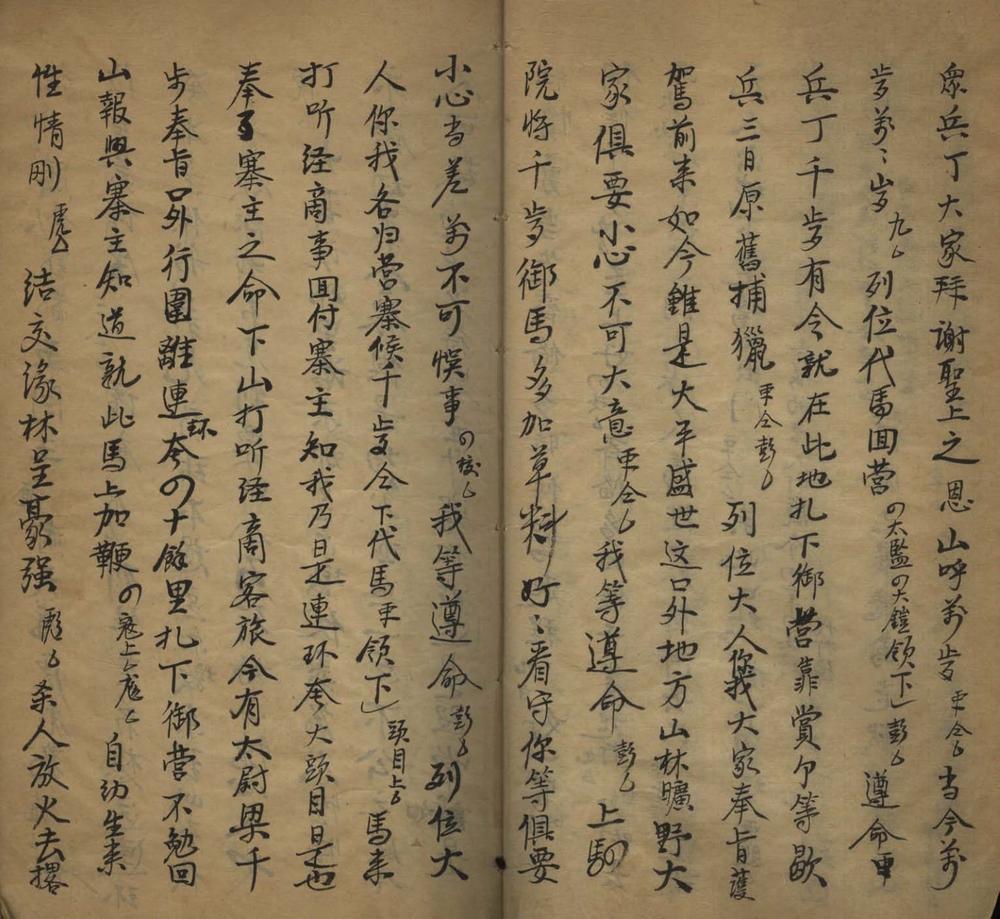 眾兵丁大家拜謝聖上之恩山呼萬歩 当今萬
歩萬〻歩 列位代馬囬营 の太監の大鎧領下 彭 遵命
兵丁千歩有令就在此地扎下御营靠賞 等歇
兵三日原舊捕獵 列位大人你我大家奉旨護
駕前来如今雖是太平盛世这口外地方山林曠野大
家俱要小心不可大意 我等遵命 彭 上駟
院将千歩御馬多加草料好〻看守你等俱要
小心当差萬不可悞事 我等遵命 彭 列位大
人你我各归营寨候千歩令下代馬 領下 頭目上 馬来
打听经商事囬付寨主知我乃是連环夅大頭目是也
奉了寨主之命下山打听经商客旅今有太尉梁千
歩奉旨口外行圍離連环夅の十餘里扎下御营不勉回
山報與寨主知道就此馬上加鞭 の寇上 自幼生来
性情刚 虎 结交綠林呈豪强 彪 杀人放火去撂